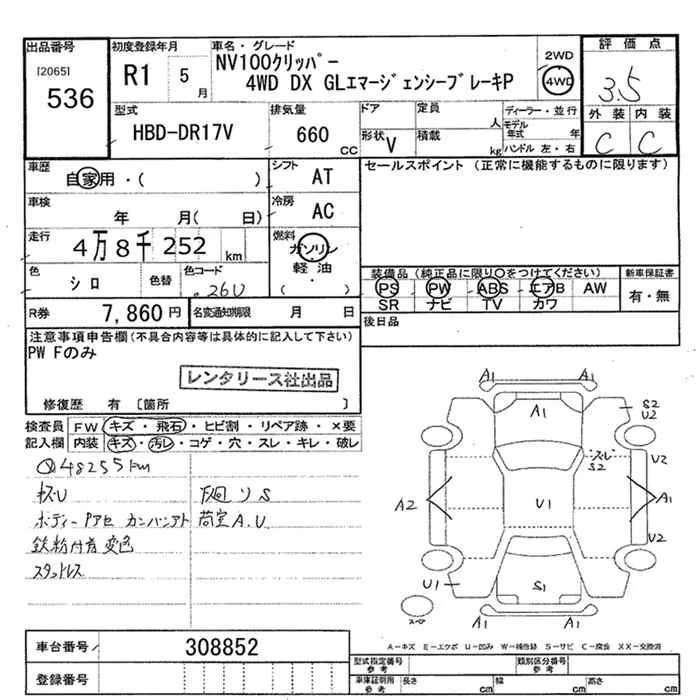 出品番号
[2065]
536
初度登録年月
R1 5月
車名・グレード
NV100クリッパー
4WD DX GLエマージェンシーブレーキP
2WD
4WD
評価点
3.5
外装 内装
C C
型式
HBD-DR17V
排気量
660 CC
ドア
形状 V
定員 人
積載 kg
ディーラー・並行
モデル年式 年
ハンドル 左・右
車歴
自家用・( )
シフト
AT
セールスポイント (正常に機能するものに限ります)
車検
年 月( 日)
冷房
AC
走行
4万8千252 km
燃料
ガソリン
軽油
( )
色
シロ
色替
色コード
26U
装備品 (純正品に限り○をつけてください)
PS PW ABS エアB AW
SR ナビ TV カワ
新車保証書
有・無
R券
7,860円
名変通知期限 月 日
後日品
注意事項申告欄(不具合内容等は具体的に記入して下さい)
PW Fのみ
レンタリース社出品
修復歴 有 [箇所 ]
検査員 FW キズ・飛石・ヒビ割・リペア跡・×要
記入欄 内装 キズ・汚レ・コゲ・穴・スレ・キレ・破レ
48255km
下廻りS
荷室A.U
鉄粉付着 変色
スタッドレス
A1 A1
A1
S2
U2
スレ
S2
U2
A2
U1
A1
U2
U1
S1
スペア
A1 A1
A-キズ E-エクボ U-凹み W-補修跡 S-サビ C-腐食 XX-交換済
車台番号
308852
登録番号
型式指定番号
参考
類別区分番号
参考
車庫証明用
参考
長さ cm 幅 cm 高さ cm